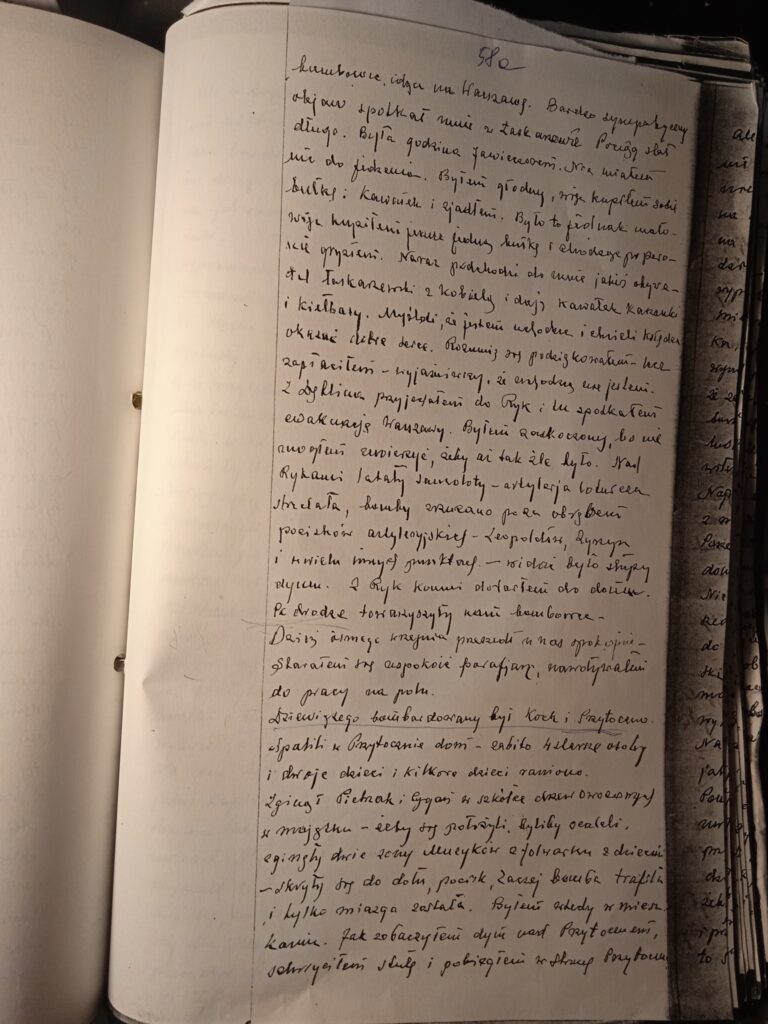 58a
bombowce, idąc na Warszawę. Bardzo sympatyczny
objaw spotkał mnie w Łaskarzewie Pociąg stał
długo. Była godzina 7 wieczorem. Nie miałem
nic do jedzenia. Byłem głodny, więc kupiłem sobie
bułkę i kawałek i zjadłem. Było to jednak mało-
więc kupiłem jeszcze jedną bułkę i chodząc po pero-
nie gryzłem. Naraz podchodzi do mnie jakiś obywa-
tel łaskarzewski z kobietą i dają kawałek kaszanki
i kiełbasy. Myśleli, że jestem uchodźcą i chcieli księdzu
okazać dobre serce. Rozumie się podziękowałem - nie
zapłaciłem - wyjaśniwszy, że uchodźcą nie jestem.
Z Dęblina przyjechałem do Ryk i tu spotkałem
ewakuację Warszawy. Byłem zaskoczony, bo nie
mogłem uwierzyć, żeby aż tak źle było. Nad
Rykami latały samoloty - artyleria lotnicza
strzelała, bomby zrzucano poza obrębem
pocisków artyleryjskich - Leopoldów, Życzyn
i w wielu innych punktach - widać było słupy
dymu. Z Ryk końmi dotarłem do domu.
Po drodze towarzyszyły nam bombowce -
Dzień ósmego września przeszedł u nas spokojnie -
Starałem się uspokoić parafian, nawoływałem
do pracy na polu.
Dziewiątego bombardowany był Kock i Przytoczno.
Spalili w Przytocznie dom - zabito 4 starsze osoby
i dwoje dzieci i kilkoro dzieci raniono.
Zginął Pietrzak i Cygan w szkółce drzew owocowych
w majątku - żeby się położyli, byliby ocaleli,
zginęły dwie żony Muzyków z folwarku z dziećmi
- skryły się do dołu, pocisk, raczej bomba trafiła
i tylko miazga została. Byłem wtedy w miesz-
kaniu. Jak zobaczyłem dym nad Przytocznem,
schwyciłem stułę i pobiegłem w stronę Przytoczna